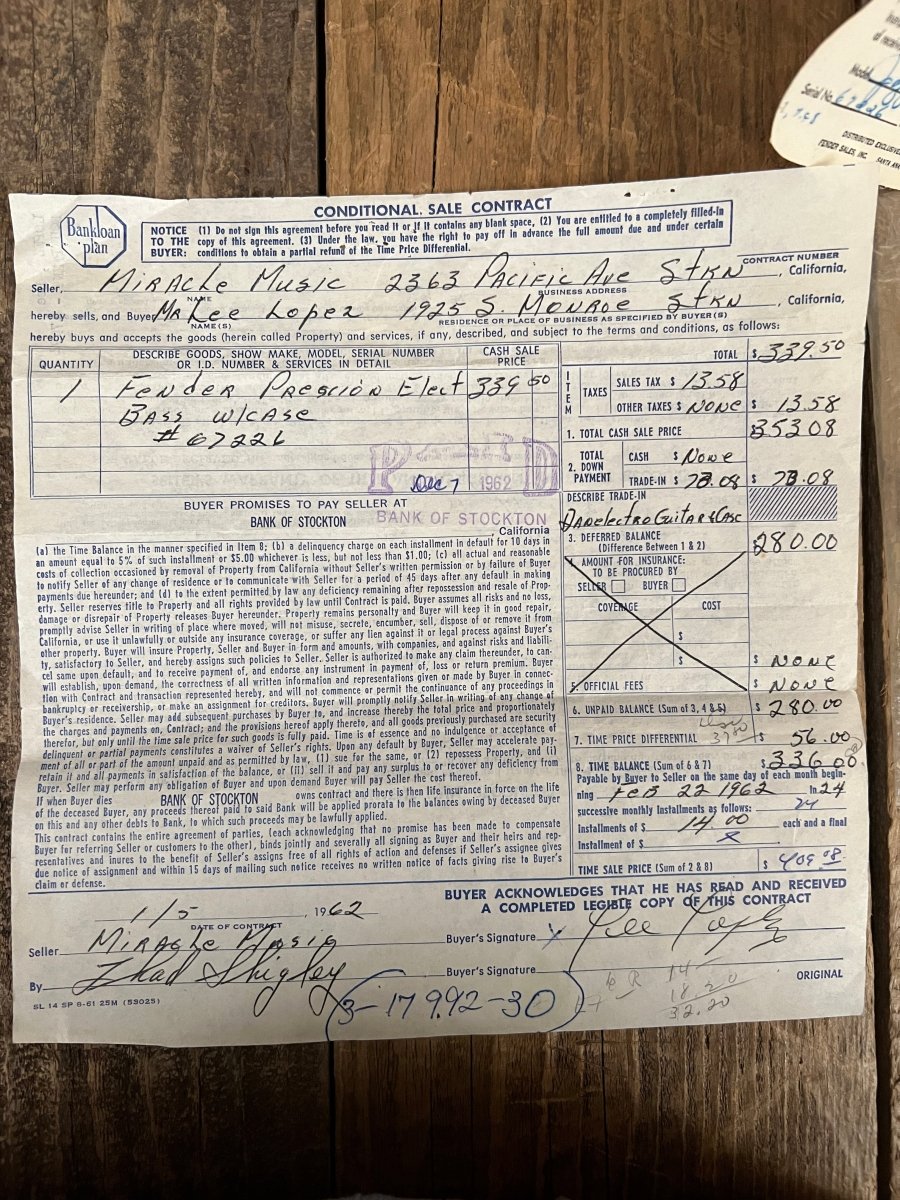 Model
Serial No. 67226
DISTRIBUTED EXCLUSIVE
FENDER SALES, INC. SANTA ANA
Bankloan plan
CONDITIONAL SALE CONTRACT
NOTICE TO THE BUYER: (1) Do not sign this agreement before you read it or if it contains any blank space, (2) You are entitled to a completely filled-in
copy of this agreement. (3) Under the law, you have the right to pay off in advance the full amount due and under certain
conditions to obtain a partial refund of the Time Price Differential.
CONTRACT NUMBER
Seller, Miracle Music 2363 Pacific Ave Stkn, California,
NAME BUSINESS ADDRESS
hereby sells, and Buyer Mr Lee Lopez 1925 S. Monroe Stkn, California,
NAME(S) RESIDENCE OR PLACE OF BUSINESS AS SPECIFIED BY BUYER(S)
hereby buys and accepts the goods (herein called Property) and services, if any, described, and subject to the terms and conditions, as follows:
QUANTITY DESCRIBE GOODS, SHOW MAKE, MODEL, SERIAL NUMBER OR I.D. NUMBER & SERVICES IN DETAIL CASH SALE PRICE
1 Fender Precsion Elect 339 50
Bass w/case
# 67226
PAID
Dec 7 1962
BANK OF STOCKTON
TOTAL $ 339.50
ITEM
TAXES
SALES TAX $ 13.58
OTHER TAXES $ None $ 13.58
1. TOTAL CASH SALE PRICE $353 08
2. TOTAL DOWN PAYMENT
CASH $ None
TRADE-IN $ 73.08 $ 73.08
DESCRIBE TRADE-IN
Danelectro Guitar & Case
3. DEFERRED BALANCE
(Difference Between 1 & 2) $280.00
4. AMOUNT FOR INSURANCE:
TO BE PROCURED BY
SELLER BUYER
COVERAGE COST
$
$ $ None
5. OFFICIAL FEES $ None
6. UNPAID BALANCE (Sum of 3, 4 & 5) $ 280.00
7. TIME PRICE DIFFERENTIAL $ 56.00
8. TIME BALANCE (Sum of 6 & 7) $336 00
Payable by Buyer to Seller on the same day of each month begin-
ning Feb 22 1962 in 24
successive monthly installments as follows: 24
Installments of $ 14.00 each and a final
Installment of $ x
TIME SALE PRICE (Sum of 2 & 8) $ 409.08
BUYER PROMISES TO PAY SELLER AT
BANK OF STOCKTON
, California
(a) the Time Balance in the manner specified in Item 8; (b) a delinquency charge on each installment in default for 10 days in
an amount equal to 5% of such installment or $5.00 whichever is less, but not less than $1.00; (c) all actual and reasonable
costs of collection occasioned by removal of Property from California without Seller's written permission or by failure of Buyer
to notify Seller of any change of residence or to communicate with Seller for a period of 45 days after any default in making
payments due hereunder; and (d) to the extent permitted by law any deficiency remaining after repossession and resale of Prop-
erty. Seller reserves title to Property and all rights provided by law until Contract is paid. Buyer assumes all risks and no loss,
damage or disrepair of Property releases Buyer hereunder. Property remains personalty and Buyer will keep it in good repair,
promptly advise Seller in writing of place where moved, will not misuse, secrete, encumber, sell, dispose of or remove it from
California, or use it unlawfully or outside any insurance coverage, or suffer any lien against it or legal process against Buyer's
other property. Buyer will insure Property, Seller and Buyer in form and amounts, with companies, and against risks and liabili-
ty, satisfactory to Seller, and hereby assigns such policies to Seller. Seller is authorized to make any claim thereunder, to can-
cel same upon default, and to receive payment of, and endorse any instrument in payment of, loss or return premium. Buyer
will establish, upon demand, the correctness of all written information and representations given or made by Buyer in connec-
tion with Contract and transaction represented hereby, and will not commence or permit the continuance of any proceedings in
bankruptcy or receivership, or make an assignment for creditors. Buyer will promptly notify Seller in writing of any change of
Buyer's residence. Seller may add subsequent purchases by Buyer to, and increase hereby the total price and proportionately
the charges and payments on, Contract; and the provisions hereof apply thereto, and all goods previously purchased are security
therefor, but only until the time sale price for such goods is fully paid. Time is of essence and no indulgence or acceptance of
delinquent or partial payments constitutes a waiver of Seller's rights. Upon any default by Buyer, Seller may accelerate pay-
ment of all or part of the amount unpaid and as permitted by law, (1) sue for the same, or (2) repossess Property, and (i)
retain it and all payments in satisfaction of the balance, or (ii) sell it and pay any surplus to or recover any deficiency from
Buyer. Seller may perform any obligation of Buyer and upon demand Buyer will pay Seller the cost thereof.
If when Buyer dies BANK OF STOCKTON owns contract and there is then life insurance in force on the life
of the deceased Buyer, any proceeds thereof paid to said Bank will be applied prorata to the balances owing by deceased Buyer
on this and any other debts to Bank, to which such proceeds may be lawfully applied.
This contract contains the entire agreement of parties, (each acknowledging that no promise has been made to compensate
Buyer for referring Seller or customers to the other), binds jointly and severally all signing as Buyer and their heirs and rep-
resentatives and inures to the benefit of Seller's assigns free of all rights of action and defenses if Seller's assignee gives
due notice of assignment and within 15 days of mailing such notice receives no written notice of facts giving rise to Buyer's
claim or defense.
BUYER ACKNOWLEDGES THAT HE HAS READ AND RECEIVED
A COMPLETED LEGIBLE COPY OF THIS CONTRACT
1/5, 1962
DATE OF CONTRACT
Seller Miracle Music Buyer's Signature x Lee Lopez
By Thad Shigley Buyer's Signature ORIGINAL
SL 14 SP 8-61 25M (53025)
3-17992-30
14
18 20
32.20